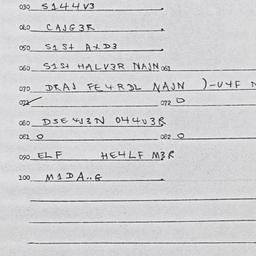 030 S144V3
040 CAJG3R
050 S1St AXD3
060 S1St HALV3R NAJN 061
070 DRAJ FE4RDL NAJN )-U4F
072 072 0
080 DSE4J3N 044U3R
081 0 082 0
090 ELF HE4LF M3R
100 M1DA..G